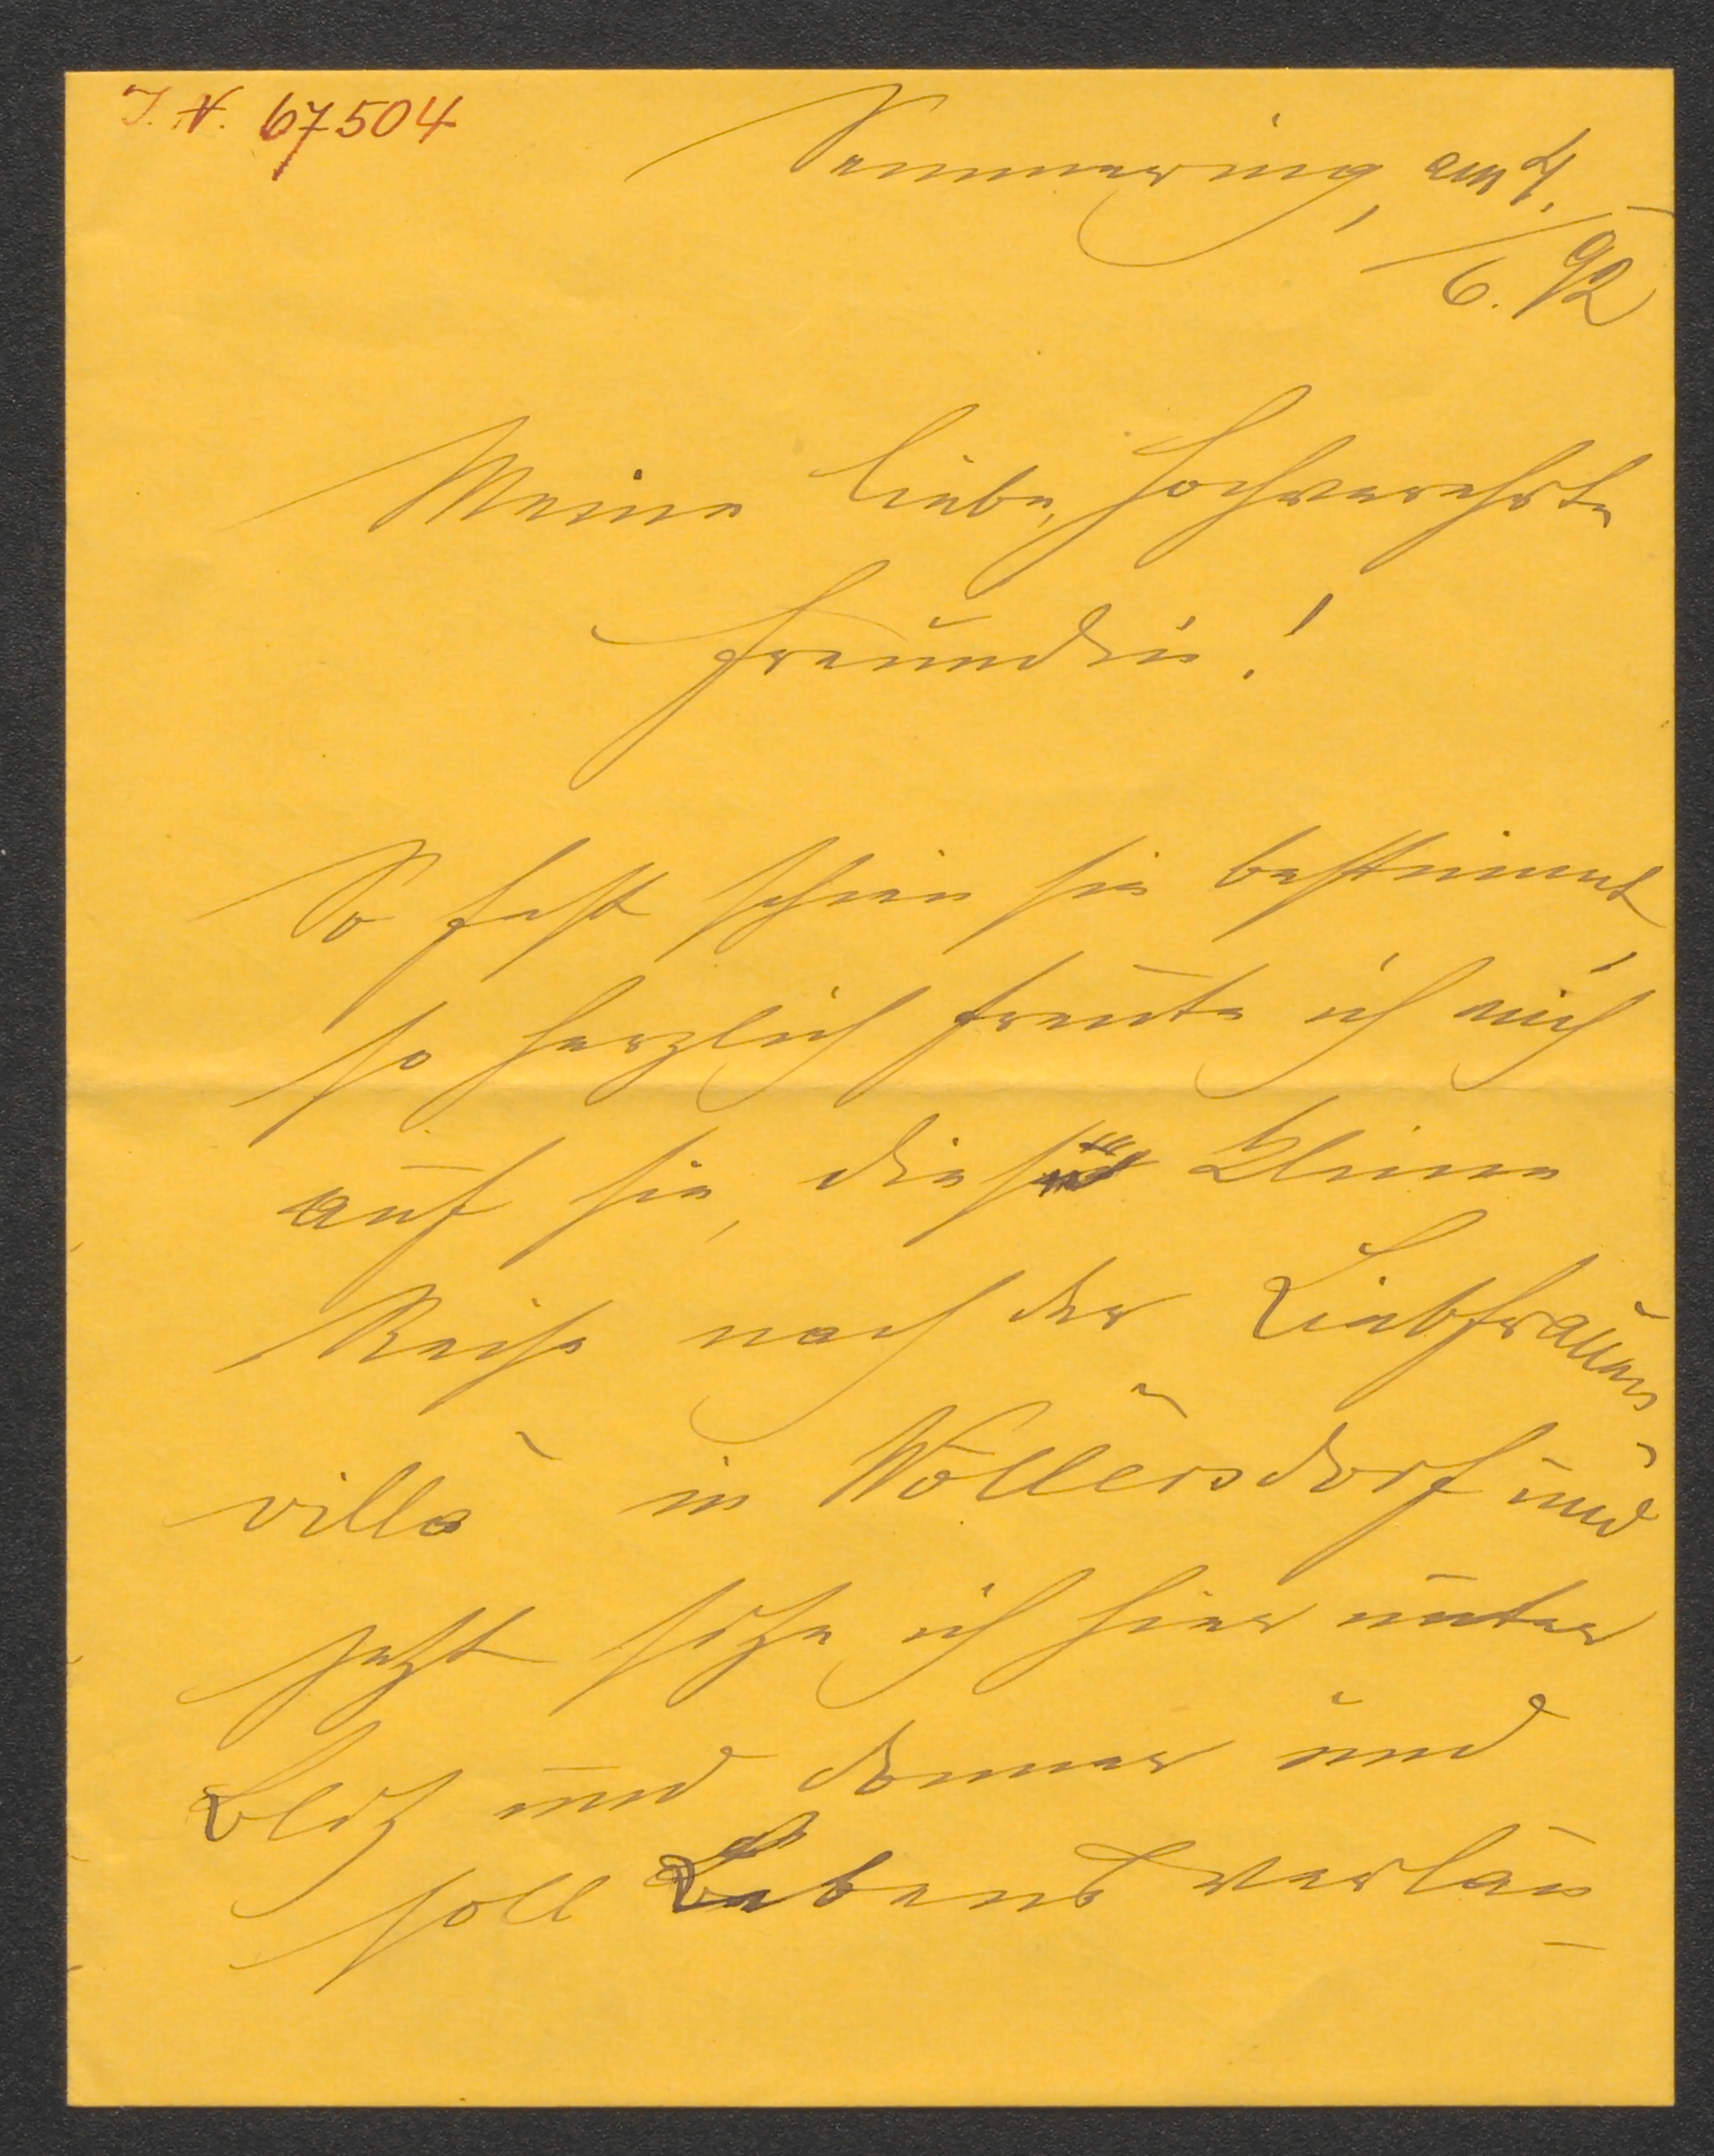 I. N. 67504
Semmering, am 4.
6. 92
Meine liebe, hochverehrte
Freundin!
So fest schien sie bestimmt,
so herzlich freute ich mich
auf sie, diese kleine
Reise nach der Liebfrauen-
villa in Wöllersdorf und
jetzt sitze ich hier unter
Blitz und Donner und
soll Lebenswerlau